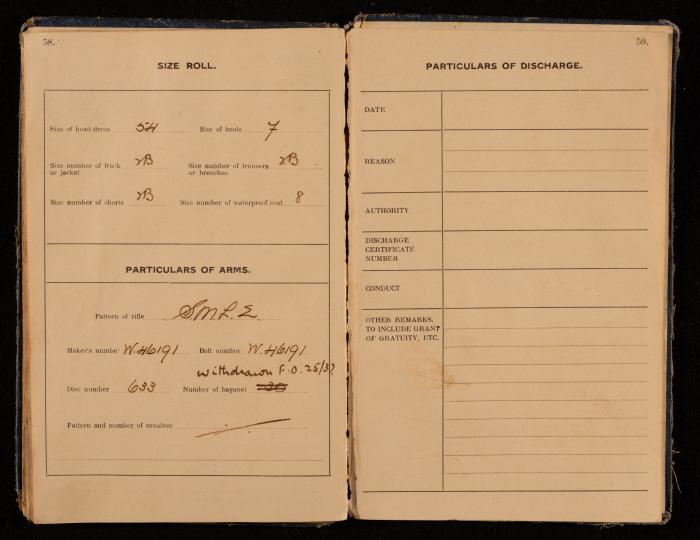 58.
SIZE ROLL.
Size of head-dress 54 Size of boots 7
Size number of frock or jacket 2B Size number of trousers or breeches 2B
Size number of shorts 2B Size number of waterproof coat 8
PARTICULARS OF ARMS.
Pattern of rifle S.M.L.E.
Maker's number W.46191 Bolt number W.46191
Withdrawn F.O. 25/37
Disc number 633 Number of bayonet
Pattern and number of revolver
59.
PARTICULARS OF DISCHARGE.
DATE
REASON
AUTHORITY
DISCHARGE
CERTIFICATE
NUMBER
CONDUCT
OTHER REMARKS.
TO INCLUDE GRANT
OF GRATUITY, ETC.